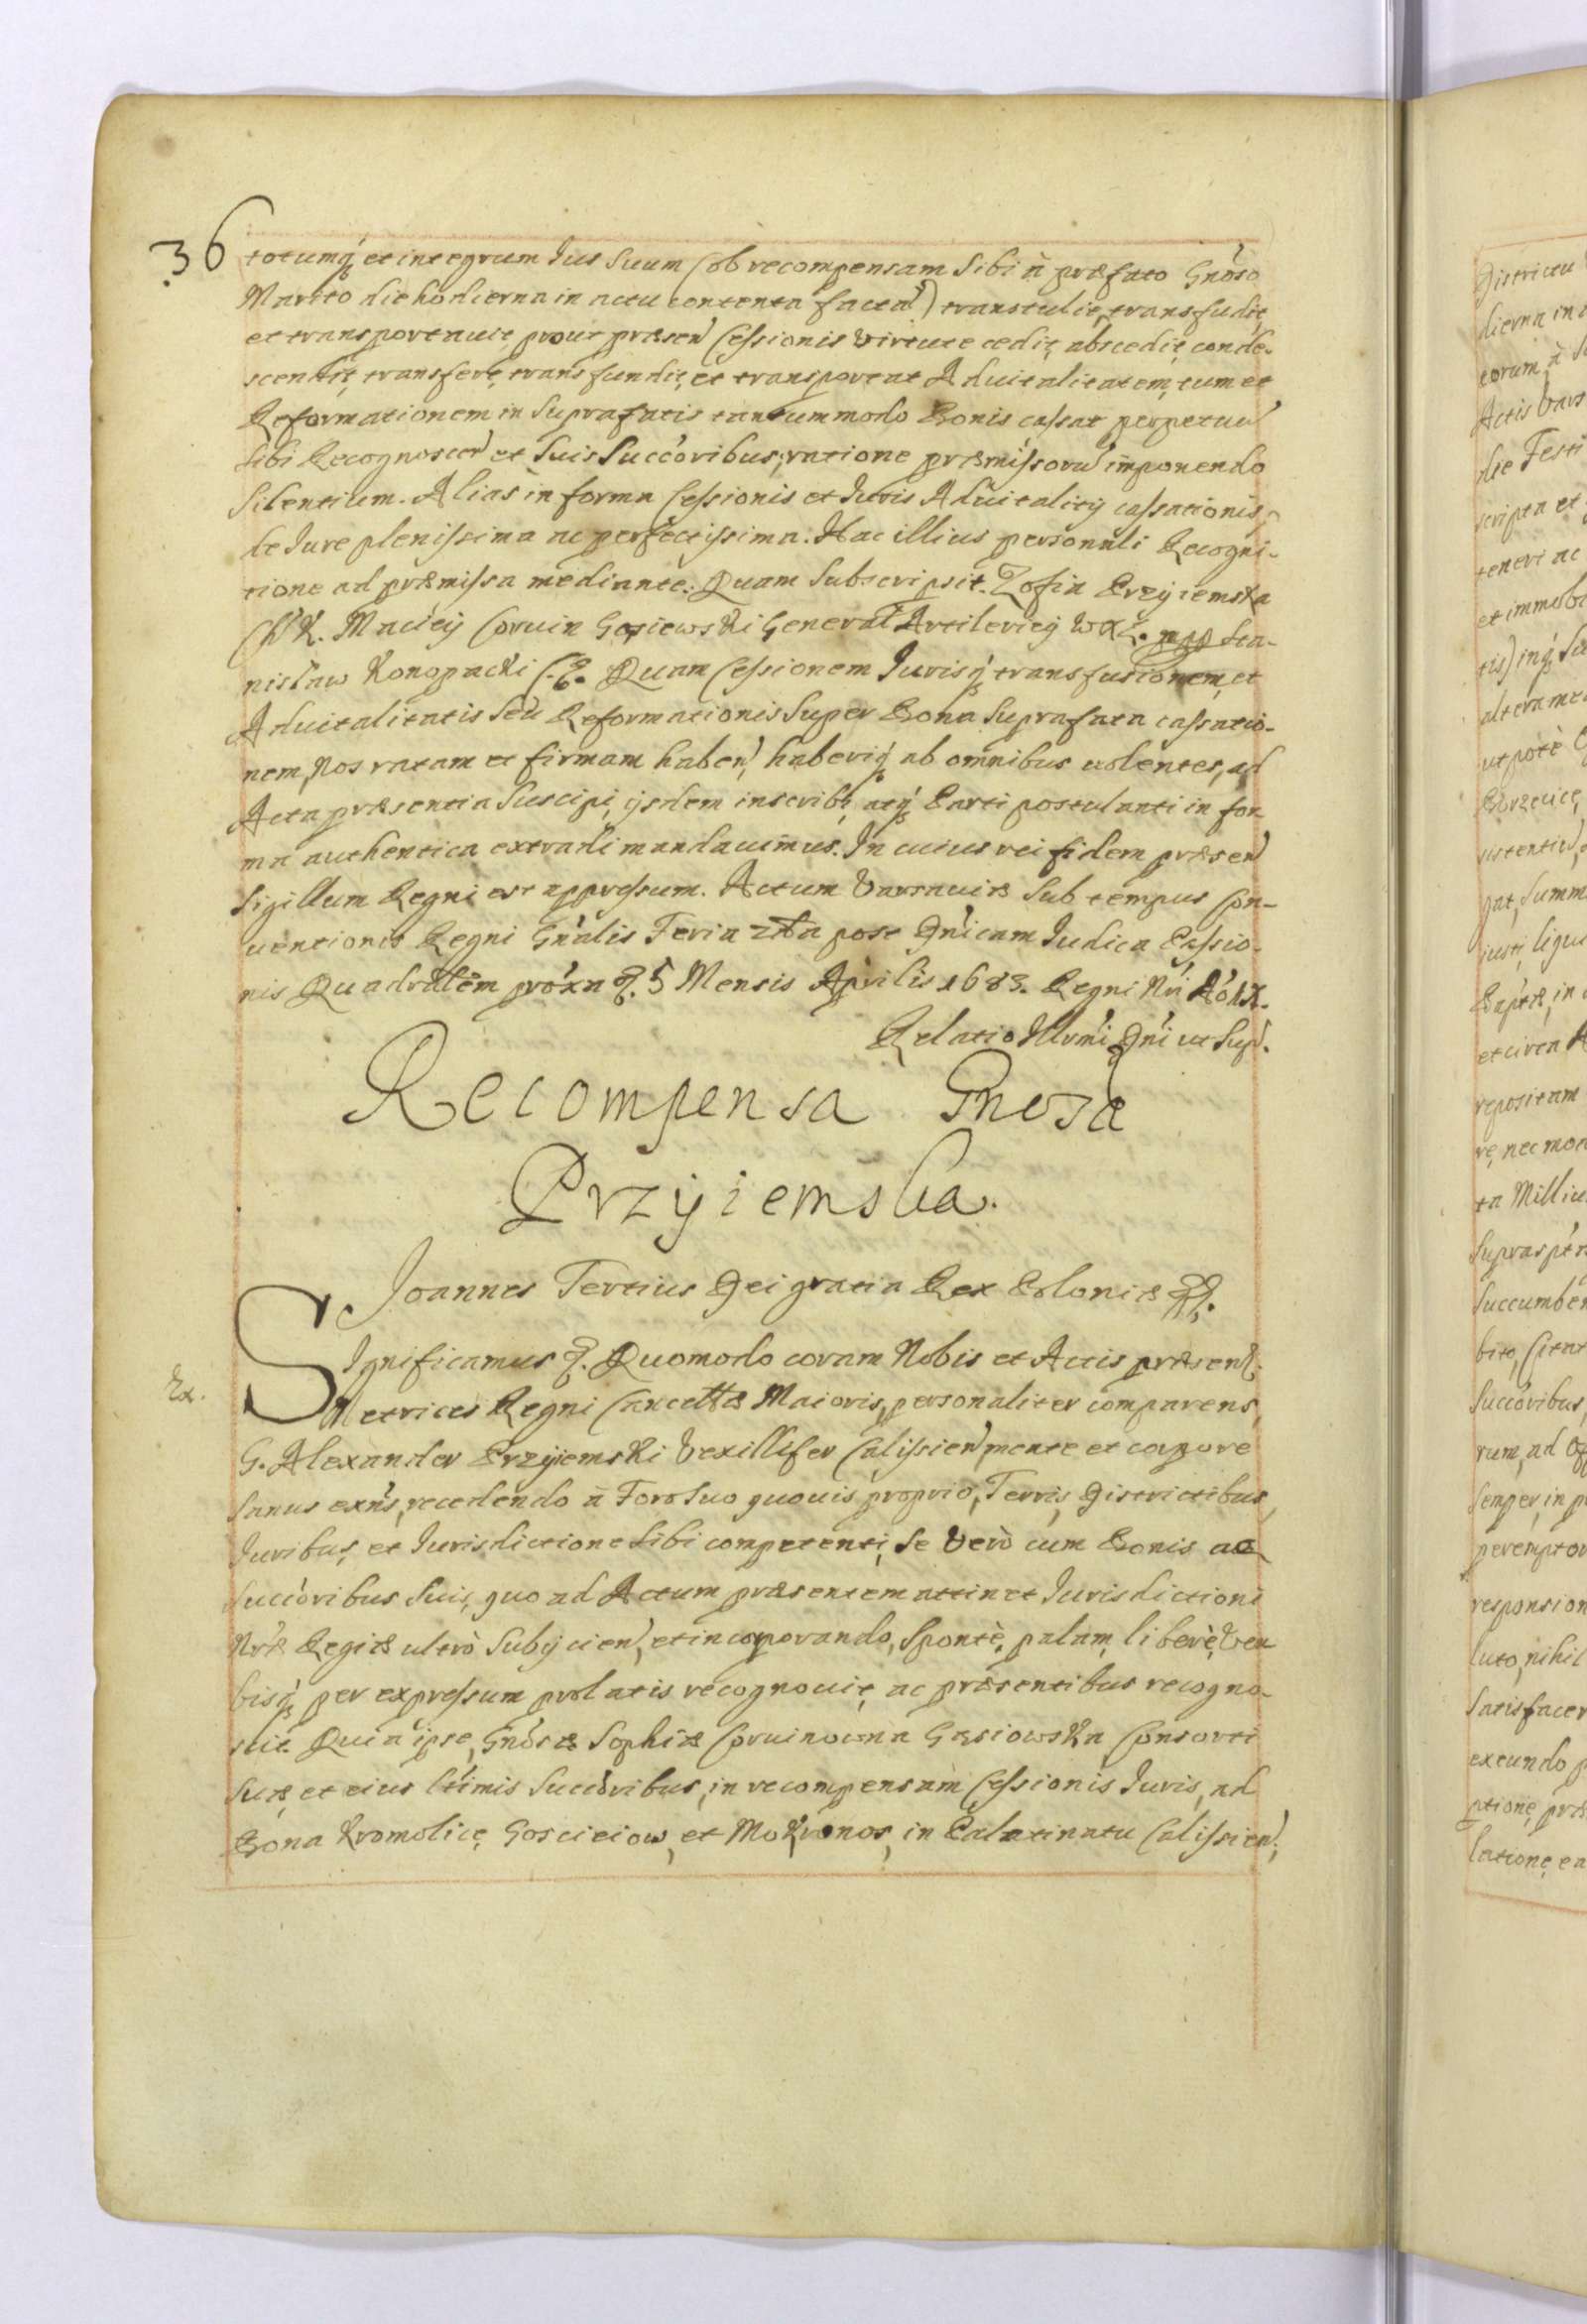 36
totumq́ et integrum Jus Suum (ob recompensam Sibi à præfato Gnoso
Marito die hodierna in actu contenta factā) transtulit, transfudit,
et transportauit prout præsen Cessionis virtute cedit, abscedit, conde-
scendit, transfert, transfundit, et transportat Aduitalitatem, tum et
Reformationem in Suprafatis tantummodo Bonis cassat perpetuū
Sibi Recognoscen et Suis Succoribus, ratione præmissorū imponendo
Silentium. Alias in forma Cessionis et Juris Aduitalitij cassationis
de Jure plenissima ac perfectissima. Hac illius personali Recogni-
tione ad præmissa mediante. Quam Subscripsit. Zofia Przyiemska
Ch K. Maciey Coruin Gosiewski General Artilerieij WXL. mpp Sta-
nisław Konopacki Quam Cessionem Jurisq́ transfusionem, et
Aduitalitatis Seu Reformationis Super Bona Suprafata cassatio-
nem, Nos ratam et firmam haben, haberiq́ ab omnibus uolentes, ad
Acta præsentia Suscipi, ijsdem inscribi, atq́ Parti postulanti in for
ma authentica extradi mandauimus. In cuius rei fidem præsen
Sigillum Regni est appressum. Actum Varsauiæ Sub tempus Con-
uentionis Regni Gnalis Feria 2da post Dnicam Judica Passio-
nis Quadrālēm proxa 5 Mensis Aprilis 1683. Regni Nri
Relatio Illrmi Dni ut Sup.
Recompensa Gnosæ
Przyiemska.
Joannes Tertius Dei gratia Rex Poloniæ
Ex.
SIgnificamus Quomodo coram Nobis et Actis præsen
Metrices Regni Cancellæ Maioris, personaliter comparens,
G. Alexander Przyiemski Vexillifer Calissien mente et corpore
Sanus exns, recedendo à Foro Suo quouis proprio, Terris, Districtibus,
Juribus, et Jurisdictione Sibi competenti, Se verò cum Bonis ac
Succoribus Suis, quo ad Actum præsentem attinet Jurisdictioni
Nræ Regiæ ultrò Subijcien, et incorporando, Spontè, palam, liberè, ver
bisq́ per expressum prolatis recognouit, ac præsentibus recogno-
scit. Quia ipse, Gnosæ Sophiæ Coruinowna Gąsiowska Consorti
Suæ, et eius Ltimis Succoribus, in recompensam Cessionis Juris, ad
Bona Kromolice, Goscieiow, et Mokronos, in Palatinatu Calissien,